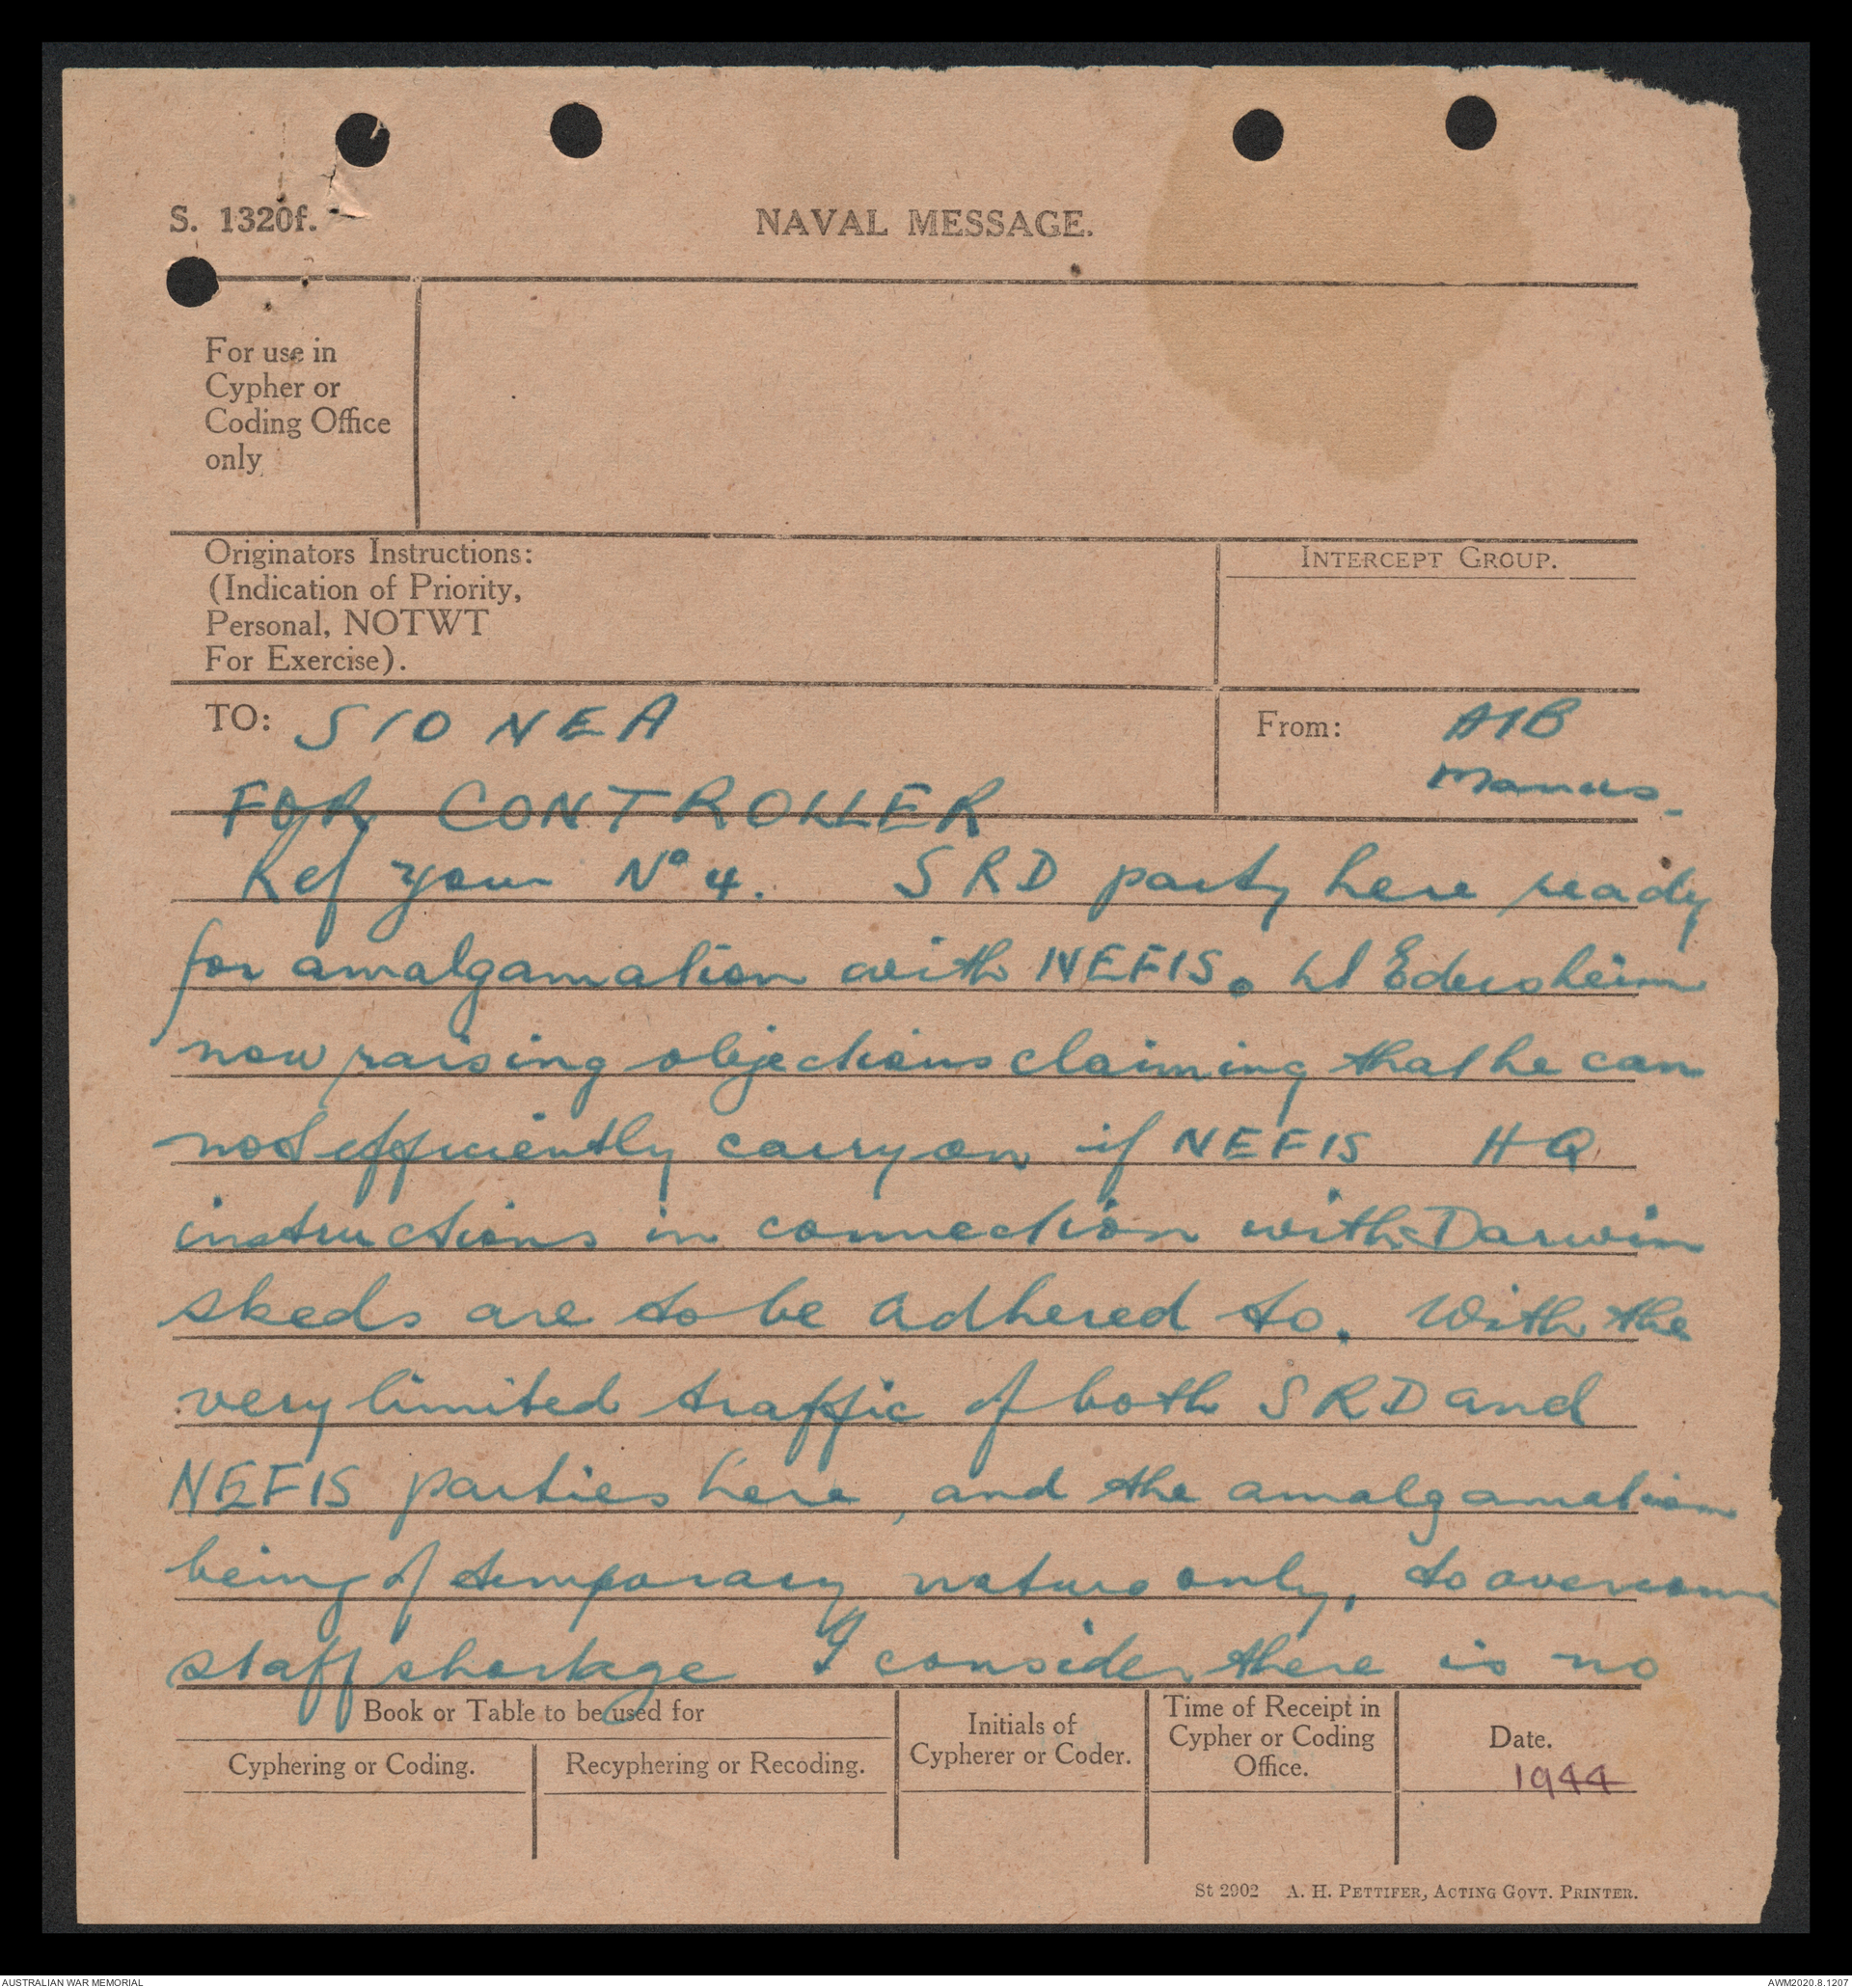 S. 1320f.
NAVAL MESSAGE.
For use in
Cypher or
Coding Office
only
Originators Instructions:
(Indication of Priority,
Personal, NOTWT
For Exercise).
INTERCEPT GROUP.
TO: SIO NEA
From: AIB
Manus.
FOR CONTROLLER
Ref your No 4. SRD party here ready
for amalgamation with NEFIS. Lt Edersheim
now raising objections claiming that he can
not efficiently carry on if NEFIS HQ
instructions in connection with Darwin
skeds are to be adhered to. With the
very limited traffic of both SRD and
NEFIS parties here, and the amalgamation
being of temporary nature only, to overcome
staff shortage I consider there is no
Book or Table to be used for
Cyphering or Coding.
Recyphering or Recoding.
Initials of
Cypherer or Coder.
Time of Receipt in
Cypher or Coding
Office.
Date.
1944
St 2902 A. H. PETTIFER, ACTING GOVT. PRINTER.
AUSTRALIAN WAR MEMORIAL
AWM2020.8.1207